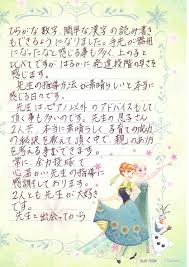 ひらがな、数字、簡単な漢字の読み書き
もできるようになりました。手先が器用
になったなと感じる事も多く、上の子と
比べてですが、はるかに発達段階の早さを
感じます。
先生の指導方法が素晴らしいと本当に
感じる日々です。
先生はピアノ以外のアドバイスもして
頂く事も多いのです。先生の息子さん
2人共、本当に素晴らしく子育ての成功
の秘訣を教えて頂く中で、親のあり方
を考える事ができます。
常に、全力投球で
心温かい先生の指導に
感謝しております。
2人とも先生が大好き
です。
先生と出会ってから